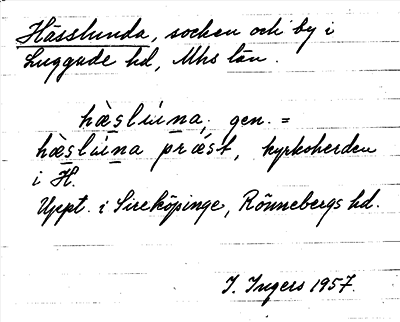 Hässlunda, socken och by i
Luggude hd, Mhs län.
hæ̀slúna, gen. =
hæ̀slúna præ̀st, kyrkoherden
i H.
Uppt. i Sireköpinge, Rönnebergs hd.
I. Ingers 1957.